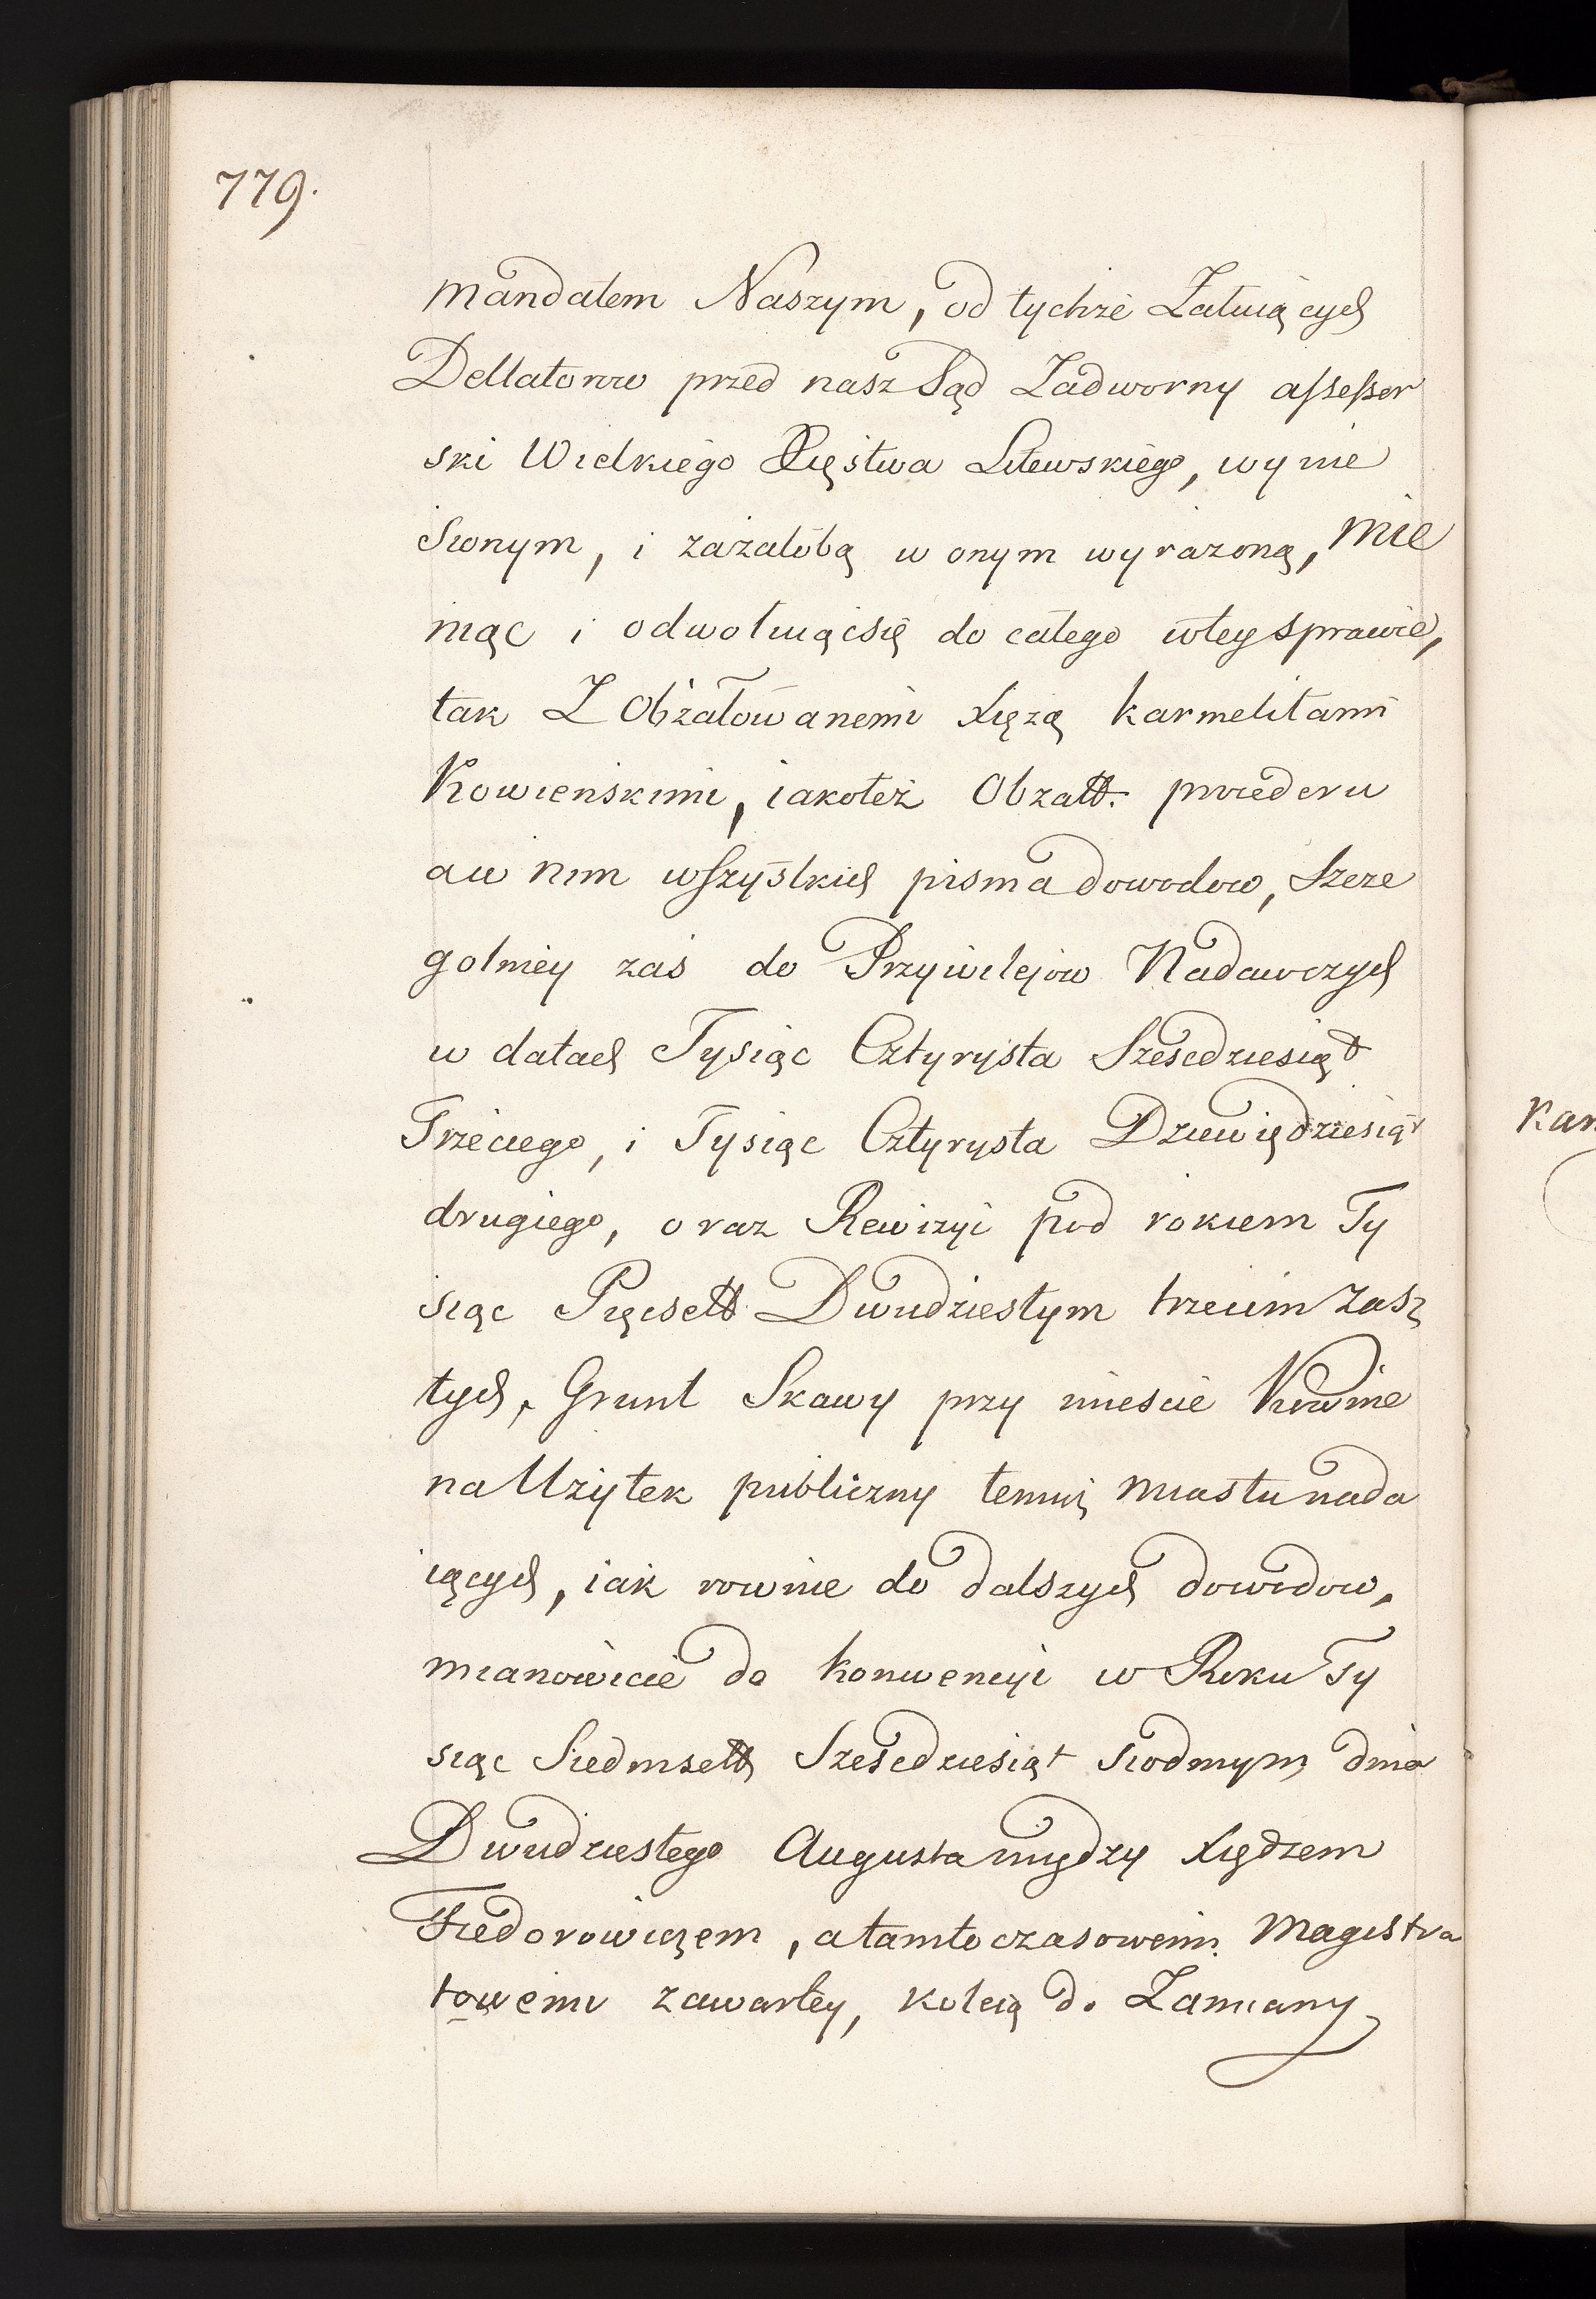 779.
mandatem Naszym, od tychże Żałuiących
Dellatorow przed nasz Sąd Zadworny assessor
ski Wielkiego Xięstwa Litewskiego, wynie
sionym, i zażałobą w onym wyrażoną, mie
niąc i odwołuiącsię do całego wtey sprawie,
tak Z Obżałowanemi Xiężą karmelitami
Kowieńskimi, iakoteż Obżałł. procederu
aw nim wszystkich pisma dowodow, szcze
golniey zaś do Przywilejow Nadawczych
w datach Tysiąc Cztyrysta Sześcdziesiąt
Trzeciego, i Tysiąc Cztyrysta Dziewiędziesiąt
drugiego, oraz Rewizyi pod rokiem Ty
siąc Pięcsett Dwudziestym trzecim zasz
łych, Grunt Skawy przy mieście Kownie
na Użytek publiczny temuż miastu nada
iących, iak rownie do dalszych dowodow,
mianowicie do konwencyi w Roku Ty
siąc Siedmsett Sześcdziesiąt siodmym dnia
Dwudziestego Augusta między Xiędzem
Fiedorowiczem, a tamtoczasowemi Magistra
towemi zawartey, koleią do Zamiany
Kar